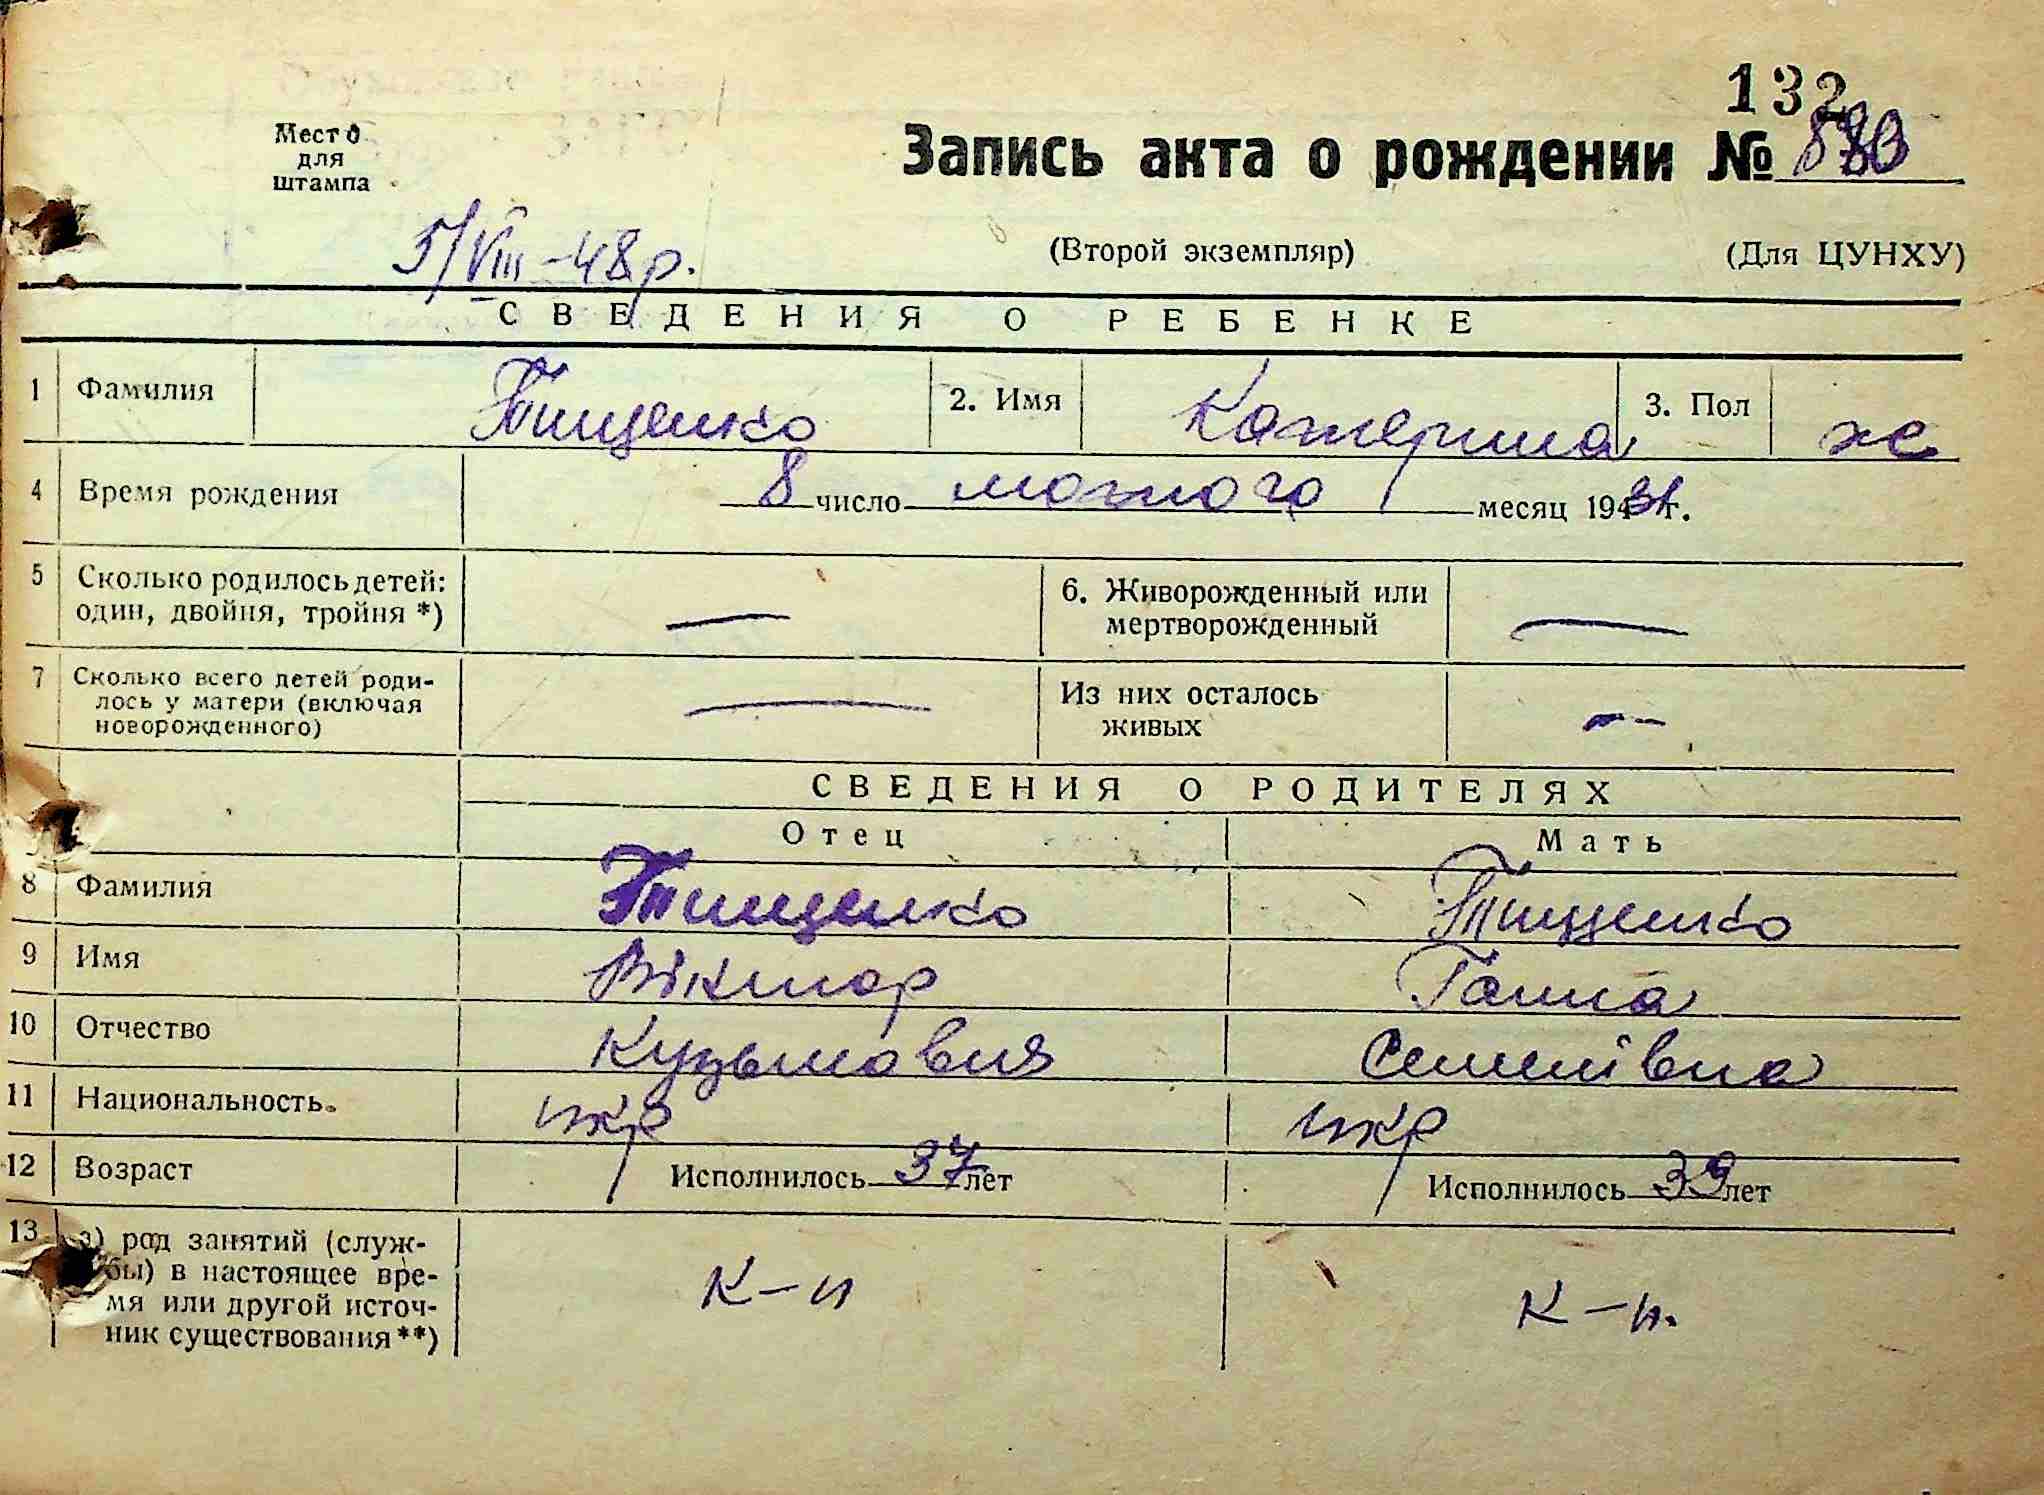 132
Место
для
штампа
Запись акта о рождении №
5/VIII-48р.
(Второй экземпляр)
(Для ЦУНХУ)
СВЕДЕНИЯ О РЕБЕНКЕ
1 Фамилия Тищенко 2. Имя Катерина 3. Пол ж
4 Время рождения 8 число лютого месяц 19 г.
5 Сколько родилось детей: — 6. Живорожденный или —
один, двойня, тройня *) мертворожденный
7 Сколько всего детей роди- — Из них осталось — –
лось у матери (включая живых
новорожденного)
СВЕДЕНИЯ О РОДИТЕЛЯХ
Отец Мать
8 Фамилия Тищенко Тищенко
9 Имя Віктор Ганна
10 Отчество Кузьмович Семенівна
11 Национальность укр укр
12 Возраст Исполнилось 37 лет Исполнилось 39 лет
13 а) род занятий (служ-
бы) в настоящее вре- к-п к-п.
мя или другой источ-
ник существования **)